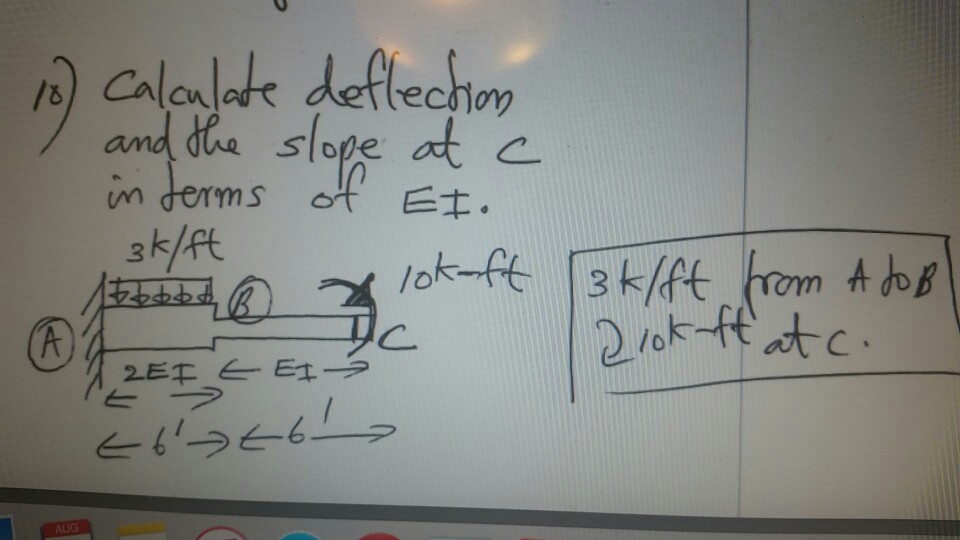 18) Calculate deflection
and the slope at C
in terms of EI.
3k/ft
10k-ft
A
B
C
2EI
EI
6'
6'
3k/ft from A to B
10k-ft at C.
AUG